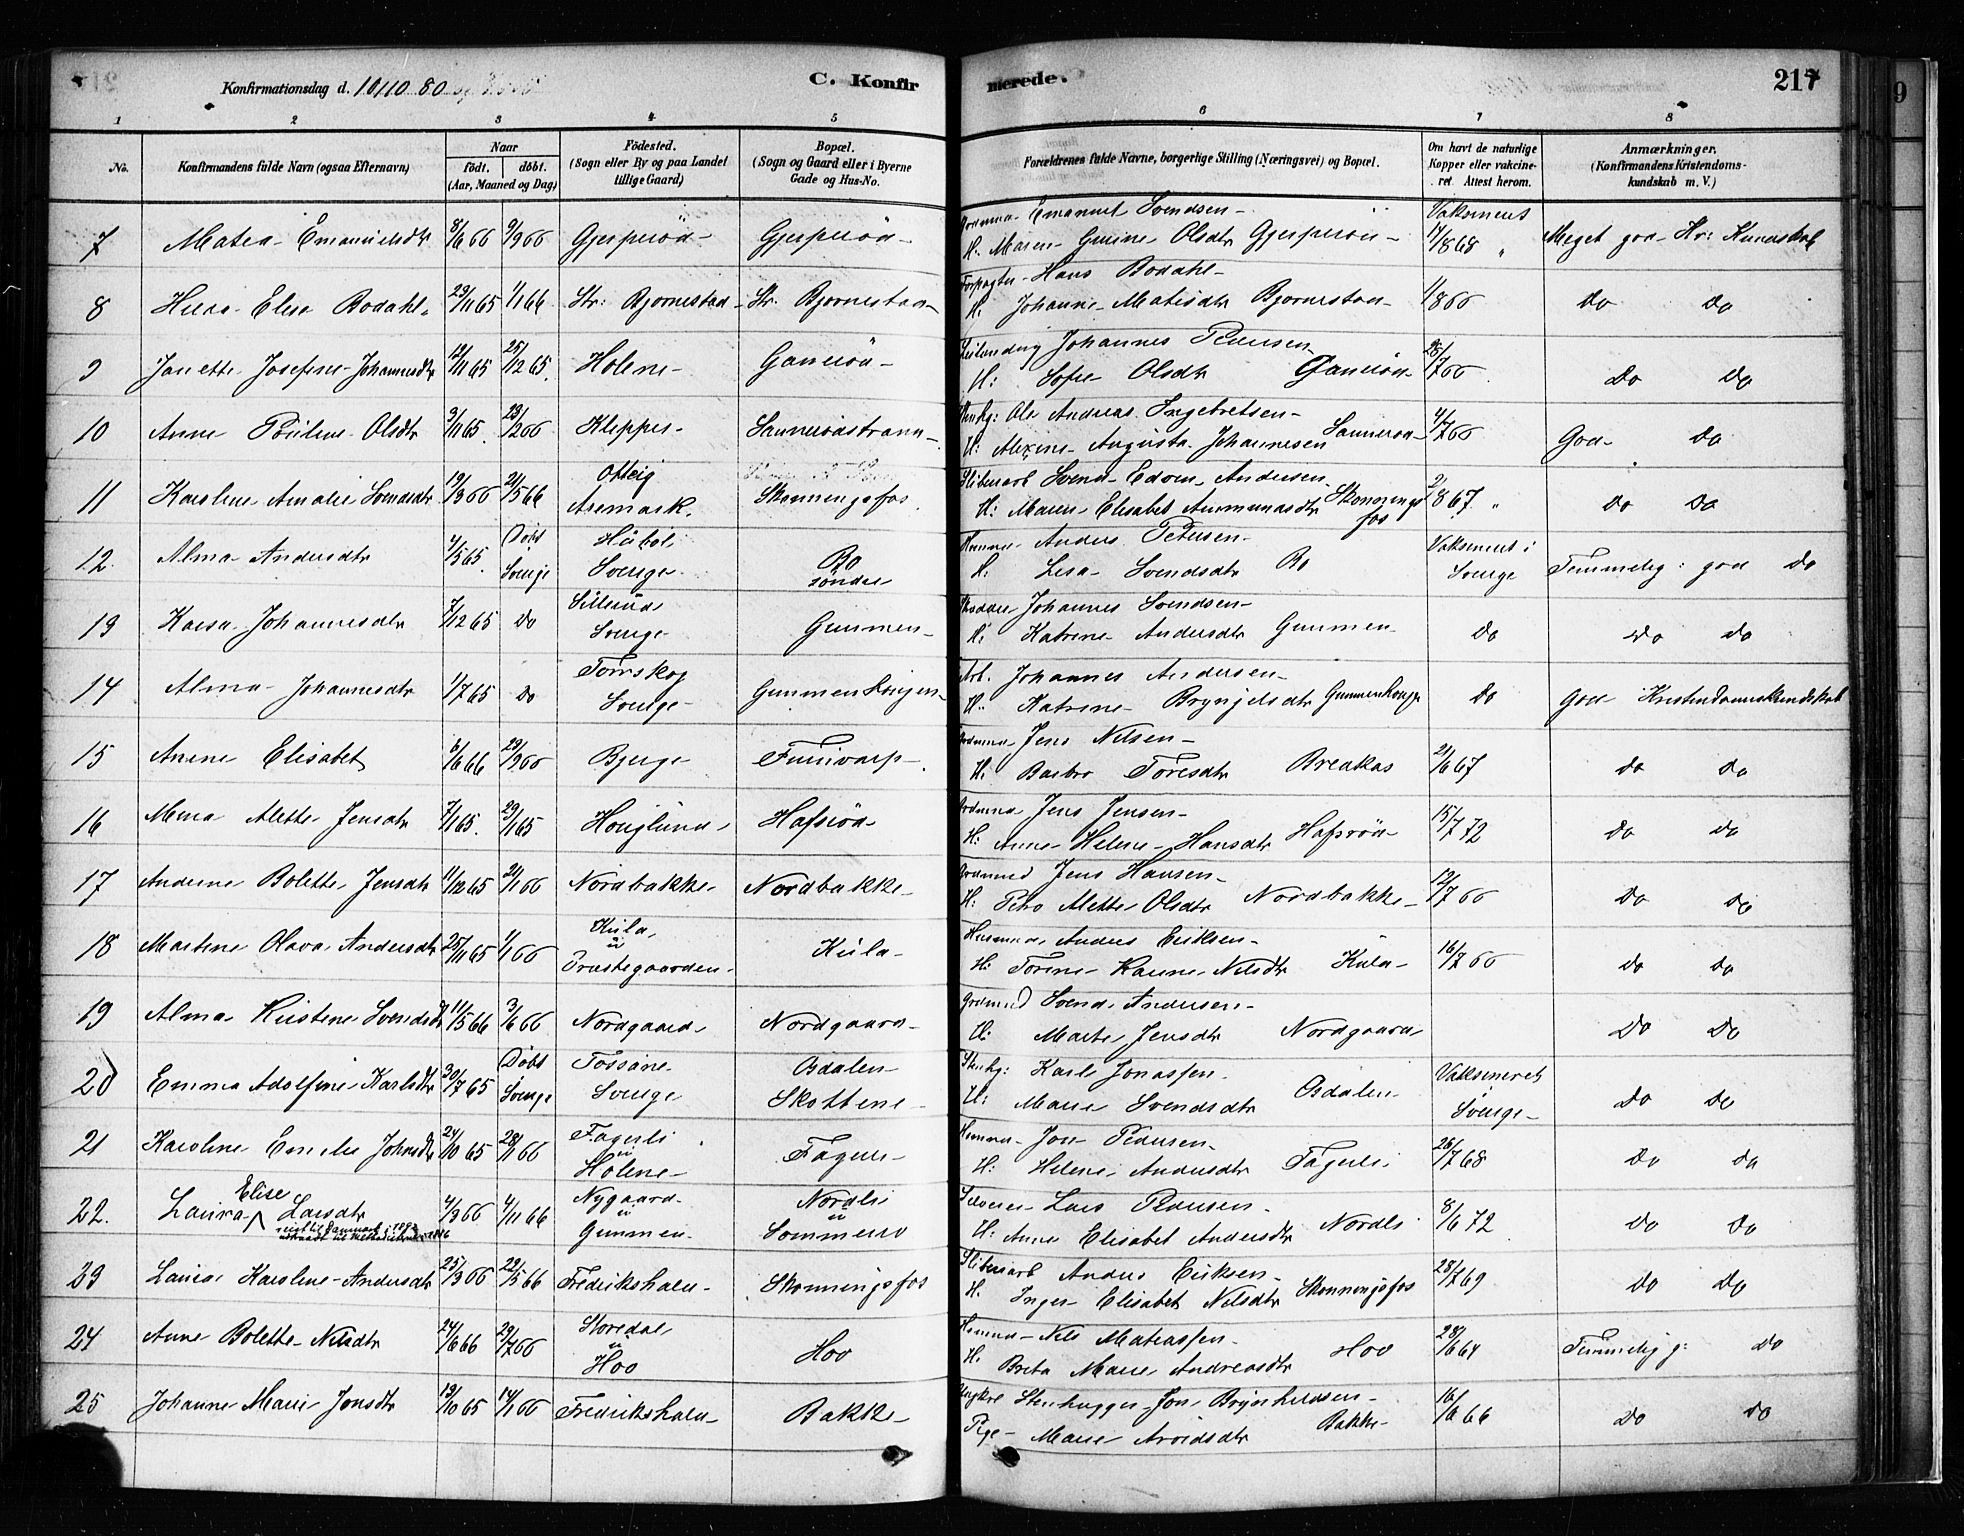 Konfirmationsdag d. 10/10 80
C. Konfirmerede.
217
9
1 2 3 4 5 6 7 8
No.
Konfirmandens fulde Navn (ogsaa Efternavn)
Naar
födt. döbt.
(Aar, Maaned og Dag)
Födested.
(Sogn eller By og paa Landet
tillige Gaard)
Bopæl.
(Sogn og Gaard eller i Byerne
Gade og Hus-No.
Forældrenes fulde Navne, borgerlige Stilling (Næringsvei) og Bopæl.
Om havt de naturlige
Kopper eller vakcine-
ret Attest herom.
Anmærkninger.
(Konfirmandens Kristendoms-
kundskab m. V.)
7 Matea Emanuelsdtr 8/6 66 9/9 66 Gjesperöd Gjesperöd
Gaardmand Emanuel Svendsen
H: Maren Gurine Olsdtr Gjesperöd
Vaksineret 14/8 68 Meget god Kr: Kundskab
8 Elise Bodahl 29/11 65 1/1 66 Str: Bjornestad Str. Bjornestad
Forpagter Hans Bodahl
H. Johanne Matisdtr Bjornestad 1/8 66 do do
9 Janette Josefine Johannesdtr 12/11 65 25/12 65 Holene Ganeröd
Johannes Pedersen
H: Sofie Olsdtr Ganeröd 26/7 66 Do Do
10 Anne Pouline Olsdtr 9/11 65 23/2 66 Kleppes
Stenhg: Ole Andreas Ingebretsen
H: Alexine Augusta Johannesen Sanneröd 4/7 66 God Do
11 Karoline Amalie Svendsdtr 19/3 66 21/5 66 Otteig Aremark. Skonningsfos
Sliberiarb Svend Edvin Andersen
H: Maren Elisabet Ammundsdtr Skonningsfos 2/8 67 " do do
12. Alma Andersdtr 4/5 65. Döbt Sverige Håbol Sverige Bö söndre
Anders Petersen
H. Lisa Svendsdtr Bö Vaksineret i Sverige Temmelig god do
13 Kaisa Johannesdtr 7/12 65 Do Sillerud Sverige Gunmen
Johannes Svendsen
H. Katrine Andersdtr Gunmen Do do do
14 Alma Johannesdtr 1/7 65 Do Torrskog Sverige
Arb. Johannes Andersen
H. Katrine Bryngelsdtr Do God Kristendomskundskab
15 Anne Elisabet 6/6 66 23/9 66 Bjerge
Gaardmand Jens Nilsen
H. Barbro Toresdtr Bredkas 21/6 67 do do
16 Mina Alette Jensdtr 7/1 65. 29/1 65 Höiglund Hafsröd
Gaardmand Jens Jensen
H: Anne Helene Hansdtr Hafsröd 15/7 72 do do
17 Anderine Bolette Jensdtr 11/12 65 21/1 66 Nordbakke Nordbakke
Gaardmand Jens Hansen
H: Petro Alette Olsdtr Nordbakke 12/7 66 Do do
18 Martine Olava Andersdtr 25/11 65 1/1 66 Kula u Præstegaarden Kula
Husmand Anders Eriksen
H. Torine Karine Nilsdtr Kula 16/7 66 do do
19 Alma Kristine Svendsdtr 11/5 66 3/6 66 Nordgaard Nordgaard
Gaardmand Svend Andersen
H: Marte Jensdtr Nordgaard Do Do
20 Emma Adolfine Karlsdtr 30/7 65 Döbt Sverige Tössöne Sverige Osdalen Skottene
Stenhg: Karl Jonassen
H: Marie Svendsdtr Osdalen Vaksineret Sverige Do Do
21 Karoline Emelie Johnsdtr 24/10 65 28/1 66 Fagerli u Holene Fagerli
Husmand Jon Pedersen
H: Helene Andersdtr Fagerli 26/7 68 Do do
22. Laura Elise Larsdtr 4/3 66 4/11 66 Nygaard u Gunmen Nordli u Sommero
Lars Pedersen
H: Anne Elisabet Andersdtr Nordli 8/6 72 do Do
23 Laura Karoline Andersdtr 25/3 66 22/5 66 Fredrikshald Skonningsfos
Sliberiarb Anders Eriksen
H. Inger Elisabet Nilsdtr Skonningsfos 28/7 69 Do Do
24 Anne Bolette Nilsdtr 24/6 66 29/7 66 Storedal u Hov Hov
Husmand Nils Mateassen
H. Berta Marie Andreasdtr Hov 28/6 64 Temmelig g: Do
25 Johanne Marie Jonsdtr 13/10 65 14/1 66 Fredrikshald Bakke
Ungkarl Stenhugger Jon Brynhildsen
Pige Marie Arvidsdtr Bakke 16/6 66 Do do